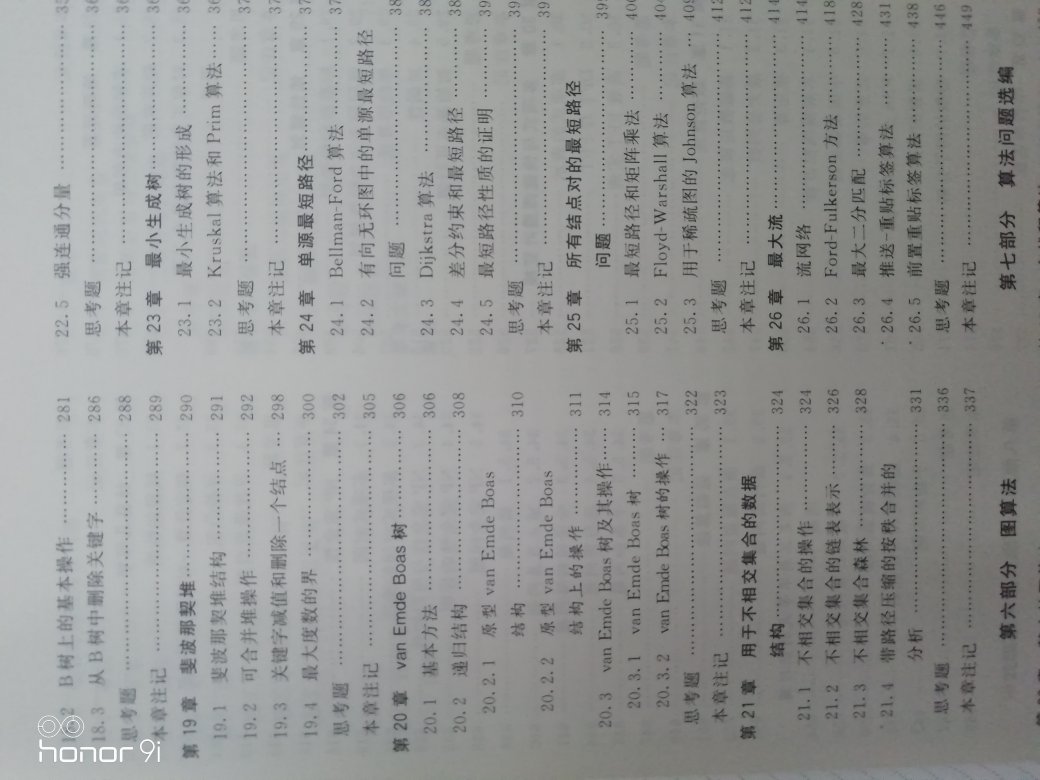 18.2 B树上的基本操作 ………… 281
18.3 从B树中删除关键字 ……… 286
思考题 ………………………… 288
本章注记 ……………………… 289
第19章 斐波那契堆 ………… 290
19.1 斐波那契堆结构 ………… 291
19.2 可合并堆操作 …………… 292
19.3 关键字减值和删除一个结点 … 298
19.4 最大度数的界 …………… 300
思考题 ………………………… 302
本章注记 ……………………… 305
第20章 van Emde Boas树 …… 306
20.1 基本方法 ………………… 306
20.2 递归结构 ………………… 308
20.2.1 原型 van Emde Boas
结构 ………………… 310
20.2.2 原型 van Emde Boas
结构上的操作 ……… 311
20.3 van Emde Boas树及其操作 …… 314
20.3.1 van Emde Boas树 …… 315
20.3.2 van Emde Boas树的操作 … 317
思考题 ………………………… 322
本章注记 ……………………… 323
第21章 用于不相交集合的数据
结构 ………………… 324
21.1 不相交集合的操作 ……… 324
21.2 不相交集合的链表表示 …… 326
21.3 不相交集合森林 ………… 328
*21.4 带路径压缩的按秩合并的
分析 ………………… 331
思考题 ………………………… 336
本章注记 ……………………… 337
第六部分 图算法
22.5 强连通分量 ……………
思考题 …………………………
本章注记 ………………………
第23章 最小生成树 …………
23.1 最小生成树的形成 ………
23.2 Kruskal算法和Prim算法 ……
思考题 …………………………
本章注记 ………………………
第24章 单源最短路径 ………
24.1 Bellman-Ford算法 ………
24.2 有向无环图中的单源最短路径
问题 …………………
24.3 Dijkstra算法 ……………
24.4 差分约束和最短路径 ……
24.5 最短路径性质的证明 ……
思考题 …………………………
本章注记 ………………………
第25章 所有结点对的最短路径
问题 …………………
25.1 最短路径和矩阵乘法 …… 400
25.2 Floyd-Warshall算法 …… 404
25.3 用于稀疏图的Johnson算法 … 409
思考题 ………………………… 412
本章注记 ……………………… 412
第26章 最大流 ……………… 414
26.1 流网络 …………………… 414
26.2 Ford-Fulkerson方法 …… 418
26.3 最大二分匹配 …………… 428
*26.4 推送-重贴标签算法 …… 431
*26.5 前置重贴标签算法 ……… 438
思考题 ………………………… 446
本章注记 ……………………… 449
第七部分 算法问题选编
honor 9i